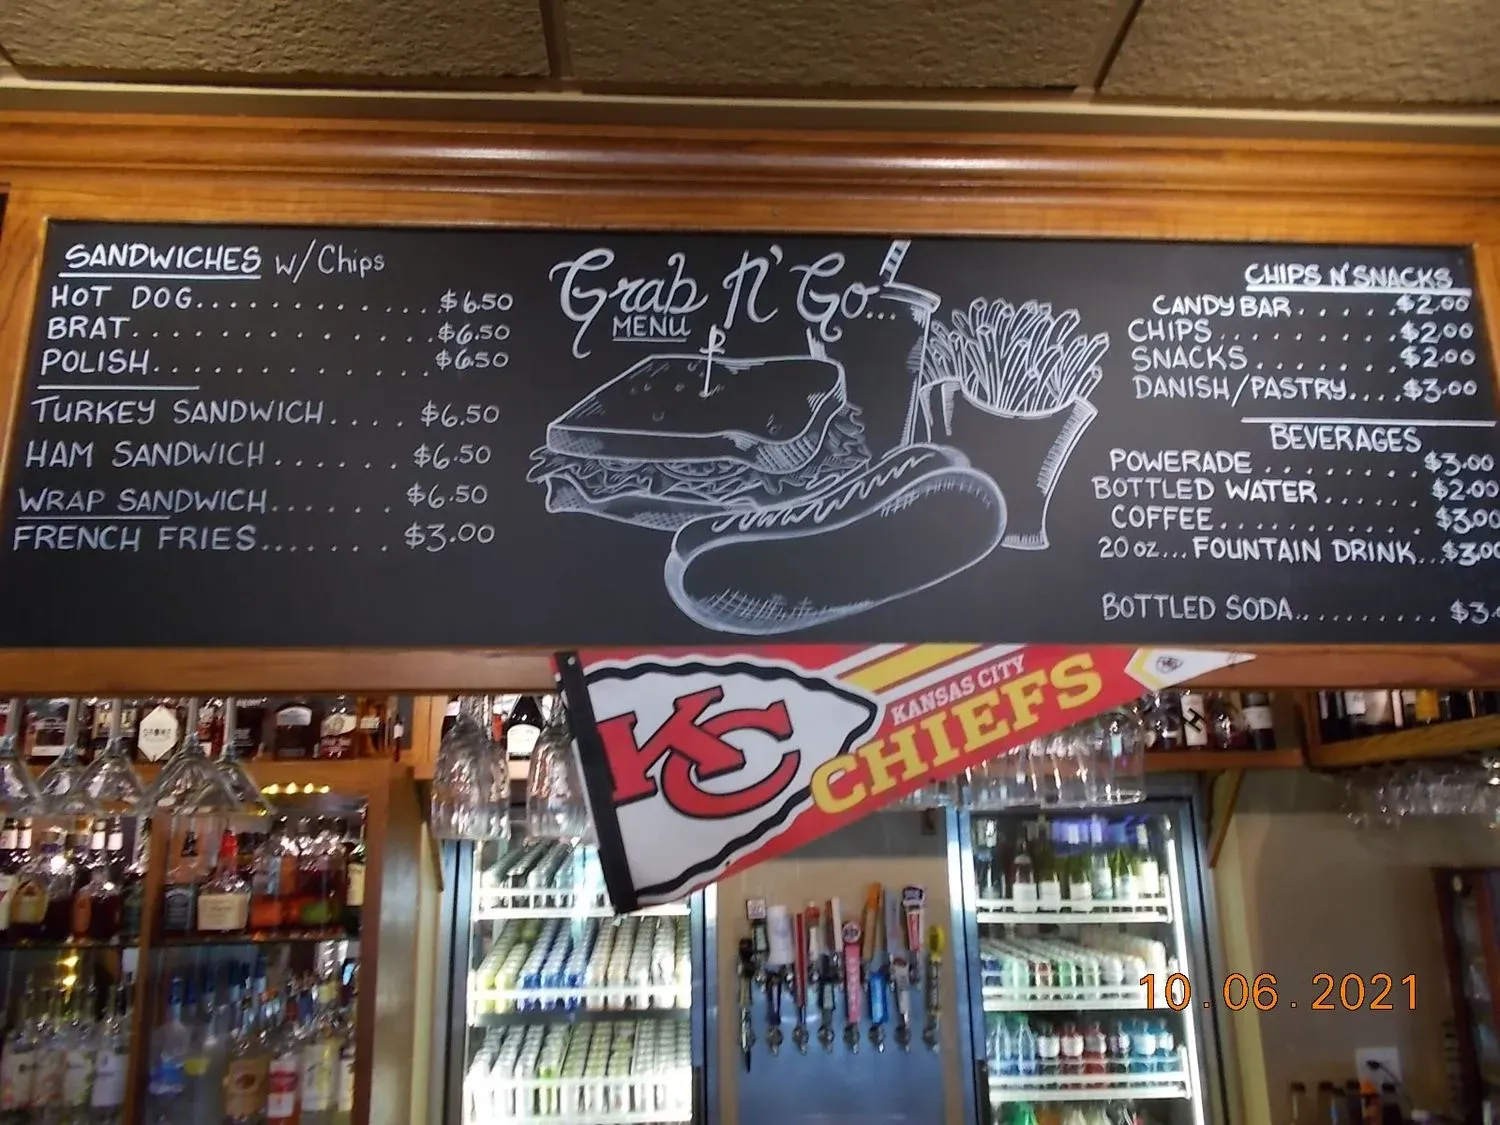 SANDWICHES w/Chips
HOT DOG............$6.50
BRAT..............$6.50
POLISH.............$6.50
TURKEY SANDWICH....$6.50
HAM SANDWICH.......$6.50
WRAP SANDWICH......$6.50
FRENCH FRIES.......$3.00
Grab N' Go...
MENU
CHIPS N' SNACKS
CANDY BAR.....$2.00
CHIPS.........$2.00
SNACKS........$2.00
DANISH/PASTRY....$3.00
BEVERAGES
POWERADE........$3.00
BOTTLED WATER.....$2.00
COFFEE...........$3.00
20 oz...FOUNTAIN DRINK...$3.00
BOTTLED SODA.........$3.
KC
KANSAS CITY
CHIEFS
10.06.2021